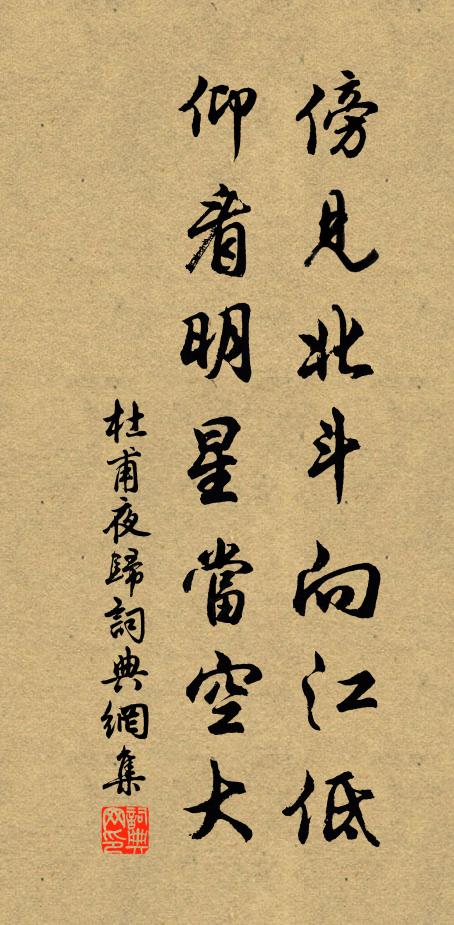 傍見北斗向江低
仰看明星當空大
杜甫夜歸詞典網集
詞典網印